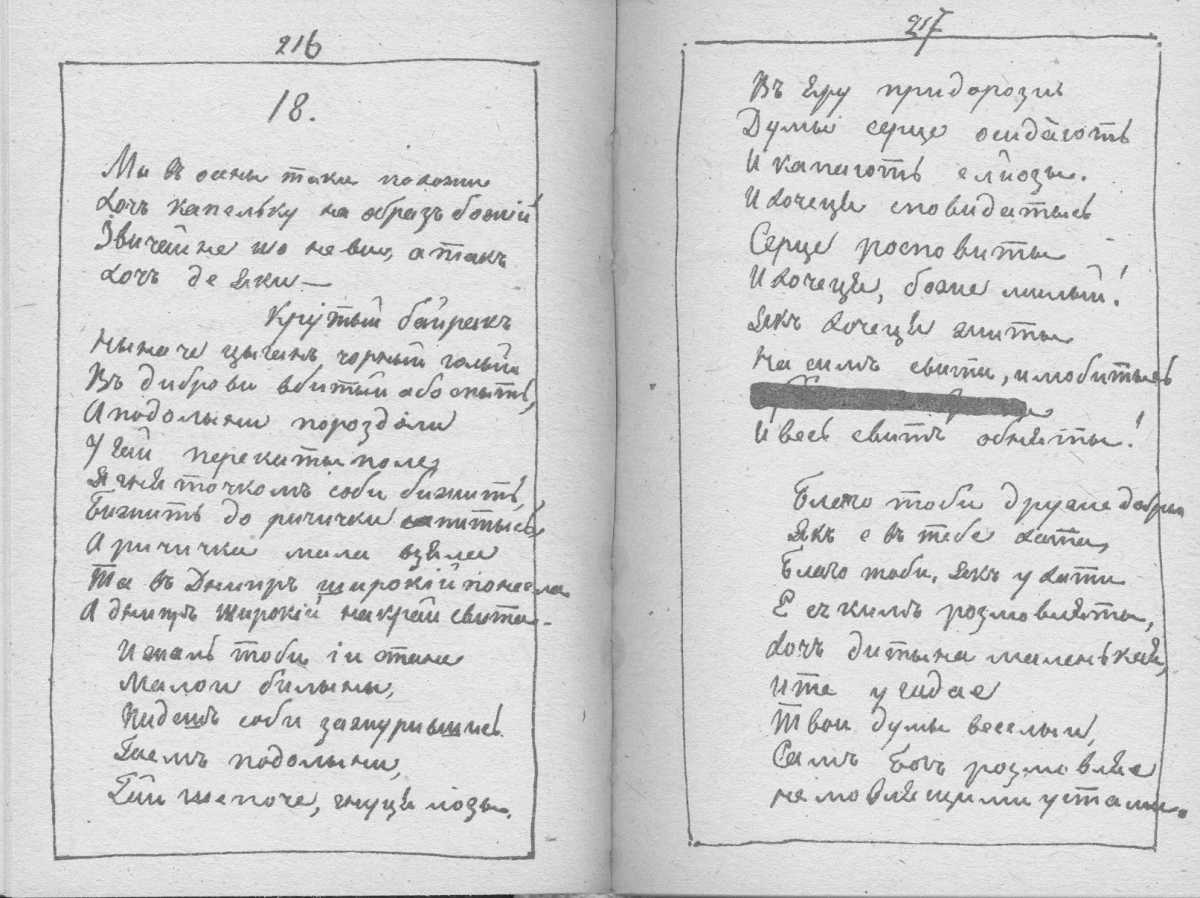 216
18.
Мы въ осены таки похожи
Хочъ капельку на образъ божій
Звичайне що не вси, а такъ
Хочъ де яки —
Крутый байракъ
Ныначе цыганъ, чорный голый
Въ диброви вбитый або спыть,
А по долыни по роздоли
У гай перекатыполе,
Ягняточкомъ соби бижить,
Бижить до ричички напитысь
А ричичка мала взяла
Та въ Днипръ широкій понесла
А днипръ широкій на край свита —
И жаль тоби іи стане
Малои былыны,
Пидешъ соби зажурывшись
Гаемъ по долыни,
Гай шепоче, гнуця лозы.
217
Въ яру при дорози
Думы серце осидають
И капають слiозы.
И хочеця сповидатысь
Серце росповиты
И хочеця, боже милый!
Якъ хочеця житы
На симъ свити, и любитысь
И весь свитъ обняты!
Благо тоби друже добрый
Якъ е въ тебе хата,
Благо тоби, якъ у хати
Е съ кимъ розмовляты,
Хочъ дитына маленькая,
И та угадае
Твои думы веселыи,
Самъ Богъ розмовляе
немовлящими устами.